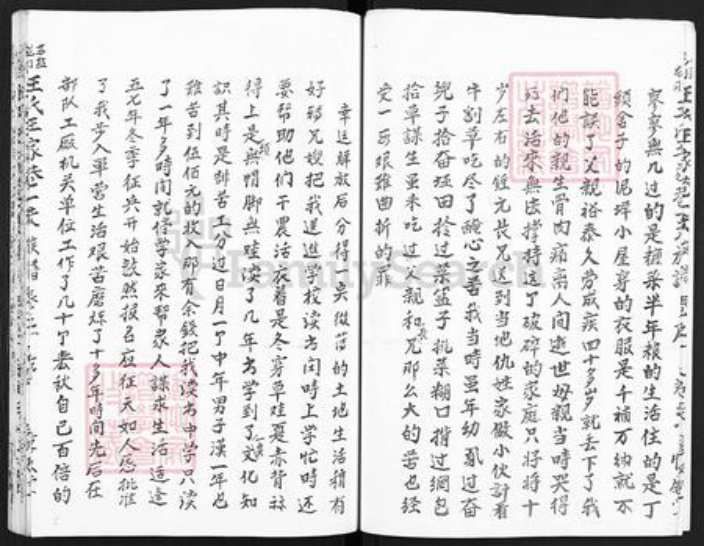 寥寥無几过的是糠菜半年粮的生活住的是丁
頭舍子的泥坪小屋穿的衣服是千補万纳就不
能談了父親裕泰久劳成疾四十多岁就丢下了我
们他的親生骨肉痛离人间逝世母親当時哭得
死去活來無法撑持这了破碎的家庭只好将十
少左右的鍾元長兄送到当地仇姓家做小伙計看
牛割草吃尽了酸心之苦我当時虽年幼亂过奋
兜子拾奋坯田拴过菜篮子挑菜糊口揹过網包
拾草謀生虽未吃过父親和長兄那么大的苦也经
受一到艰難曲折的罪
幸廷解放后分得一点微薄的土地生活稍有
好轉兄嫂把我送進学校读书闲時上学忙時还
要帮助他们干農活衣着是冬穿草哇夏赤背称
得上是頭無帽脚無哇读了几年书学到了些文化知
識其時是
难苦到伍佰元的收入那有余錢把我读书中学只读
了一年多時间就停学家來帮家人謀求生活适逢
五七年冬季征兵开始毅然报名应征天如人愿批准
了我步入軍营生活艰苦磨煉了十多年時间先后在
部队工廠机关单位工作了几十个春秋自己百倍的
FamilySearch